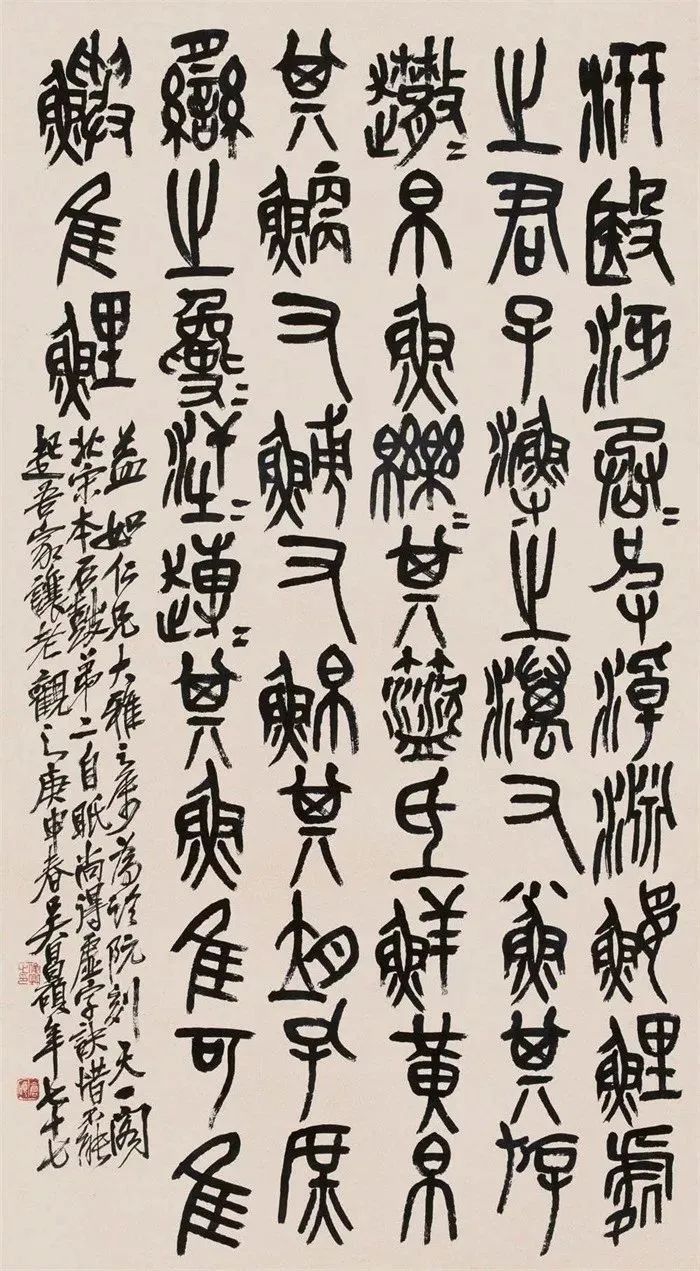 汧殹沔烝皮淖淵鰋鯉處
之君子漁之澫又小魚其斿
帛魚皪其盜氐鮮黃帛
其鯾又鯆又鮊其孔庶
臠之其魚隹可隹
鱮隹鯉
益如仁兄大雅之屬為臨阮刻天一閣
北宋本石鼓弟二自眡尚得虛字訣惜不能
起吾家讓老觀之庚申春吳昌碩年七十七